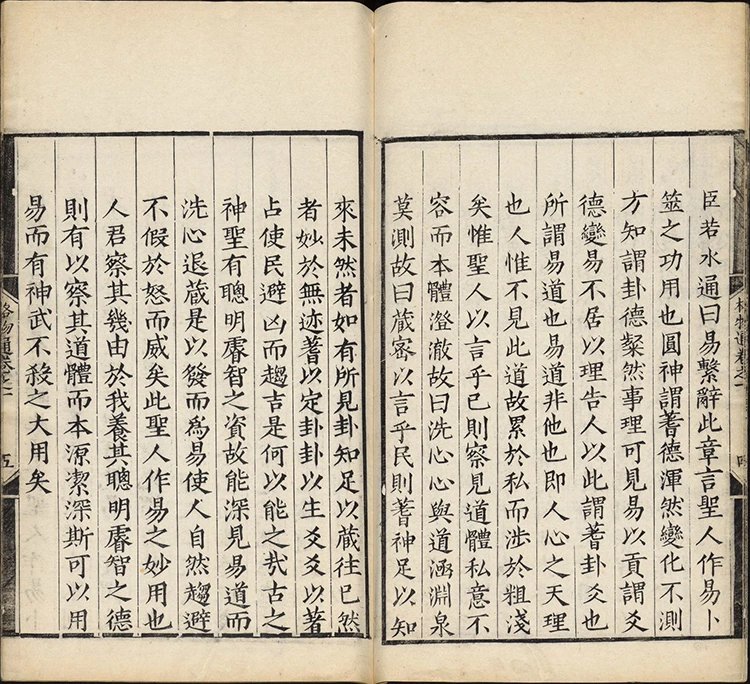 臣若水通曰易繫辭此章言聖人作易卜
筮之功用也圓神謂蓍德渾然變化不測
方知謂卦德粲然事理可見易以貢謂爻
德變易不居以理告人以此謂蓍卦爻也
所謂易道也易道非他也即人心之天理
也人惟不見此道故累於私而涉於粗淺
矣惟聖人以言乎已則察見道體私意不
容而本體澄澈故曰洗心心與道涵淵泉
莫測故曰藏密以言乎民則蓍神足以知
來未然者如有所見卦知足以藏往已然
者妙於無迹蓍以定卦卦以生爻爻以著
占使民避凶而趨吉是何以能之哉古之
神聖有聰明睿智之資故能深見易道而
洗心退藏是以發而為易使人自然趨避
不假於怒而威矣此聖人作易之妙用也
人君察其幾由於我養其聰明睿智之德
則有以察其道體而本源潔深斯可以用
易而有神武不殺之大用矣
格物通卷之一
五